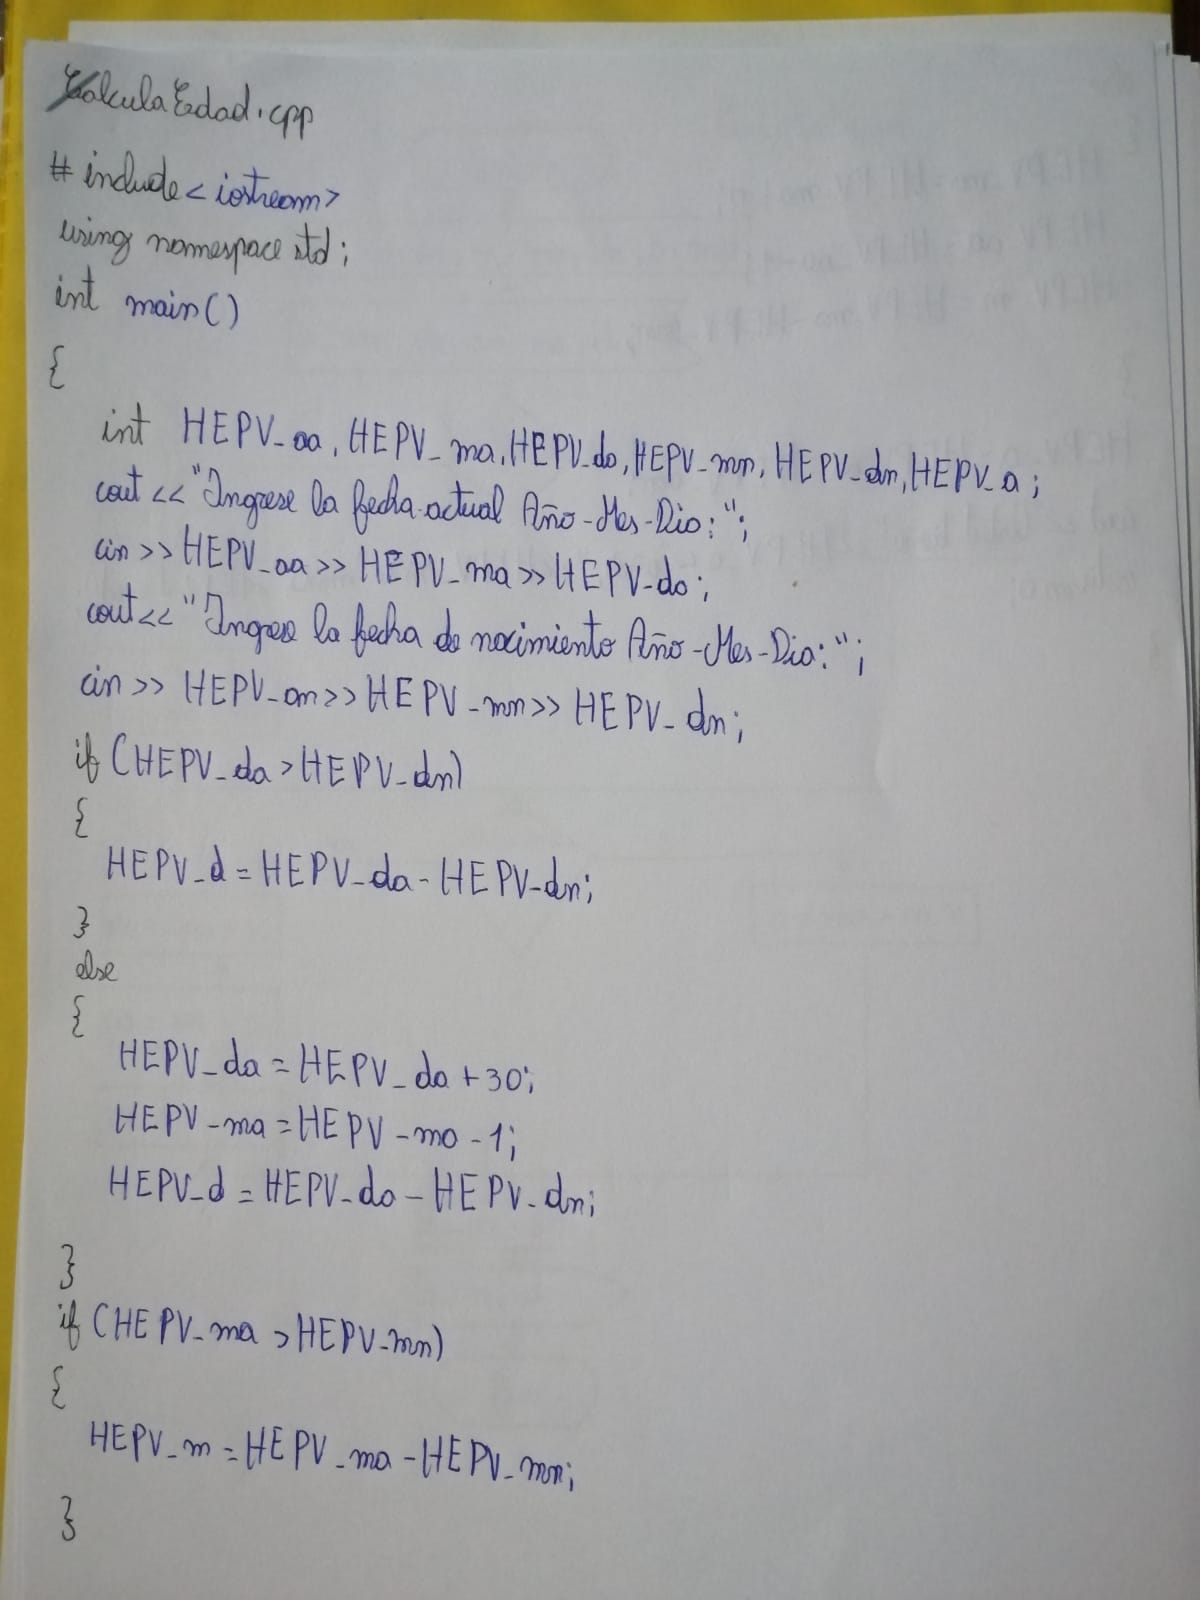 CalculaEdad.cpp
# include < iostream>
using namespace std;
int main()
{
int HEPV_aa, HEPV_ma, HEPV_da, HEPV_mn, HEPV_dn, HEPV_a;
cout << "Ingrese la fecha actual Año-Mes-Dia:";
cin >> HEPV_aa >> HEPV_ma >> HEPV_da;
cout << "Ingrese la fecha de nacimiento Año-Mes-Dia:";
cin >> HEPV_an >> HEPV_mn >> HEPV_dn;
if (HEPV_da > HEPV_dn)
{
HEPV_d = HEPV_da - HEPV_dn;
}
else
{
HEPV_da = HEPV_da + 30;
HEPV_ma = HEPV_ma - 1;
HEPV_d = HEPV_da - HEPV_dn;
}
if (HEPV_ma > HEPV_mn)
{
HEPV_m = HEPV_ma - HEPV_mn;
}